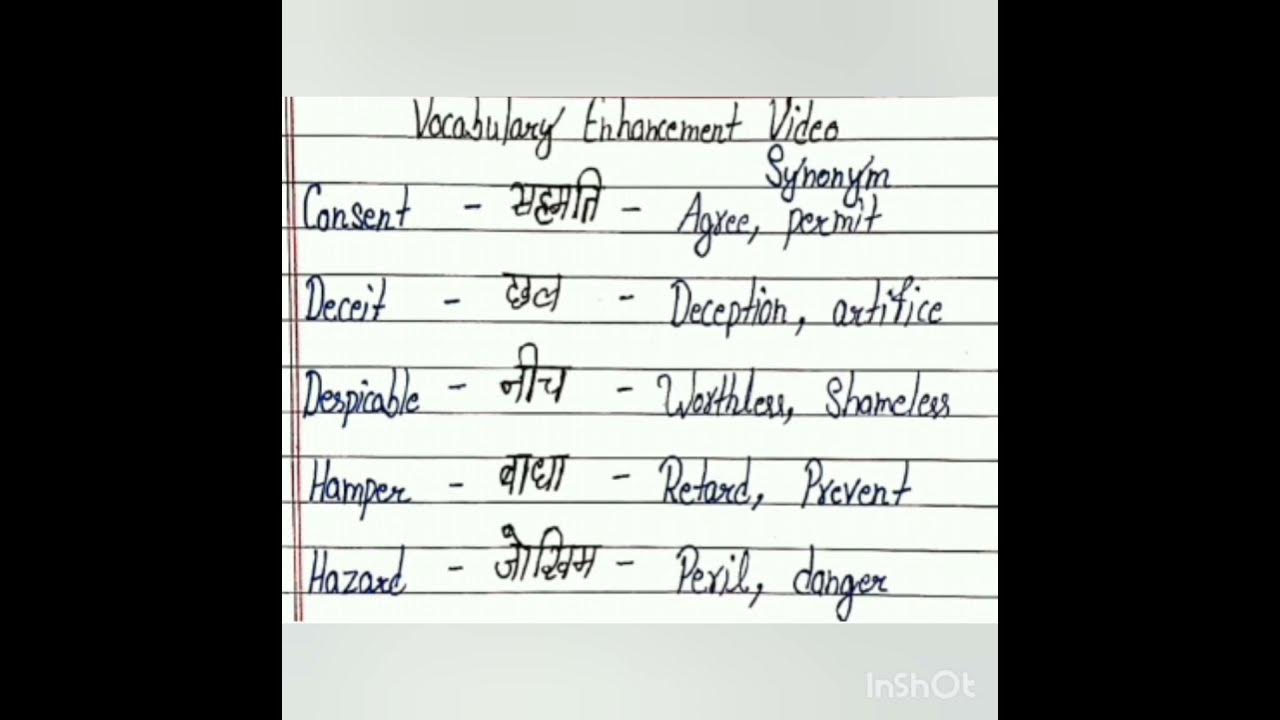 Vocabulary Enhancement Video
Synonym
Consent - सहमति - Agree, permit
Deceit - छल - Deception, artifice
Despicable - नीच - Worthless, Shameless
Hamper - बाधा - Retard, Prevent
Hazard - जोखिम - Peril, danger
InShOt